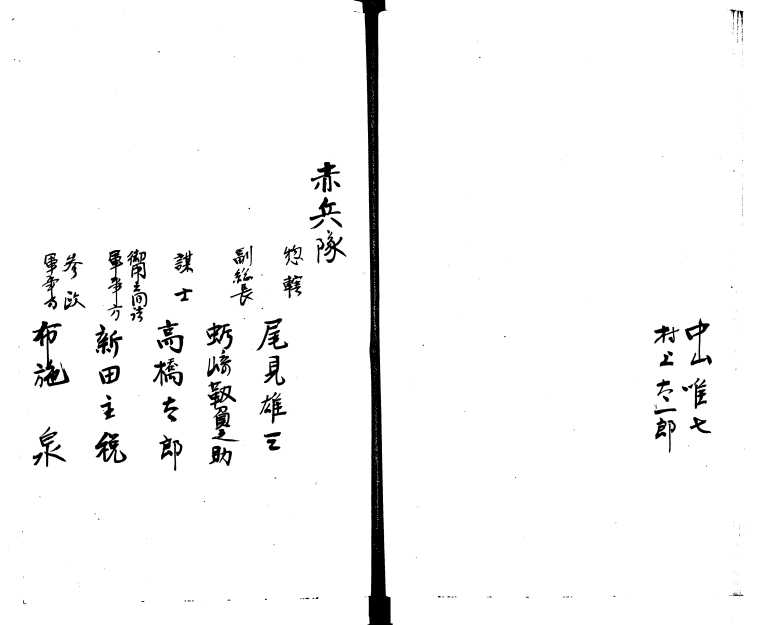 中山唯七
村上太一郎
赤兵隊
惣轄
尾見雄三
副総長
蛎崎靱負之助
謀士
高橋太郎
御用之間詰
軍事方
新田主税
参政
軍事方
布施 泉